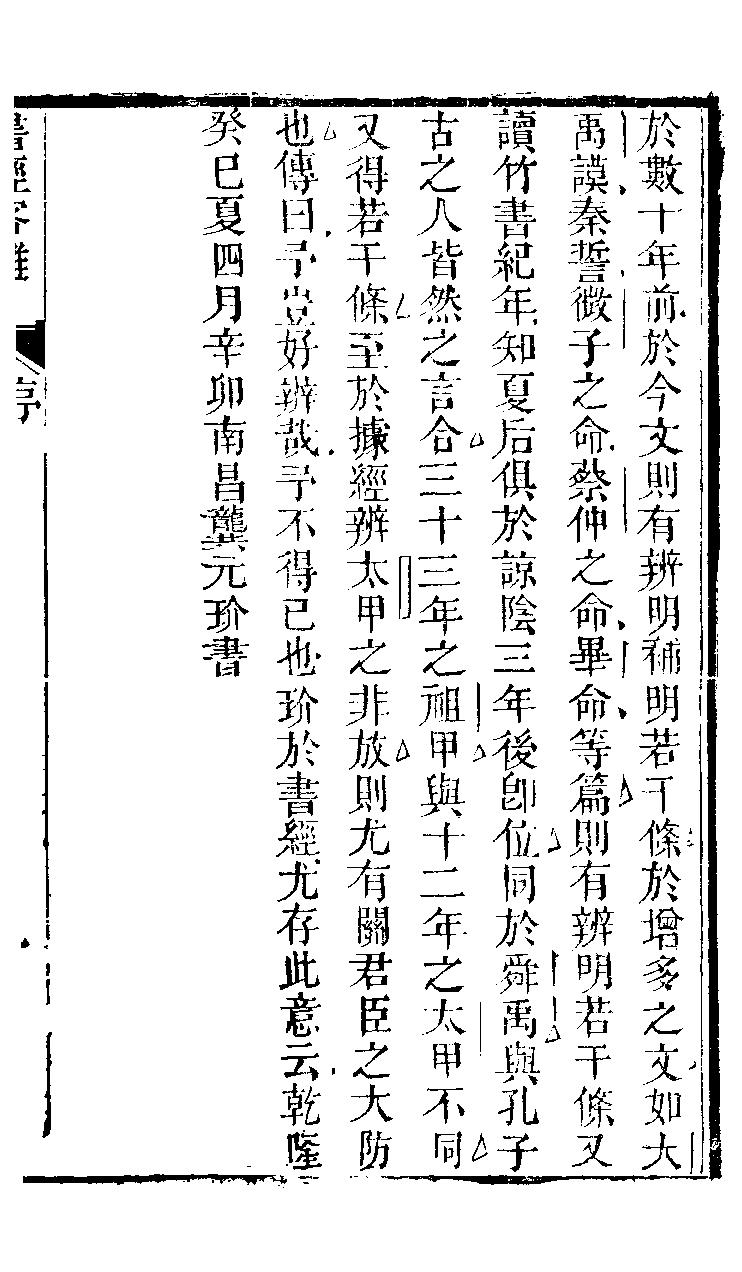 於數十年前於今文則有辨明補明若干條於增多之文如大
禹謨秦誓微子之命蔡仲之命畢命等篇則有辨明若干條又
讀竹書紀年知夏后俱於諒陰三年後卽位同於舜禹與孔子
古之人皆然之言合三十三年之祖甲與十二年之太甲不同
又得若干條至於據經辨太甲之非放則尤有關君臣之大防
也傳曰予豈好辨哉予不得已也玠於書經尤存此意云乾隆
癸巳夏四月辛卯南昌龔元玠書
書經客難
序